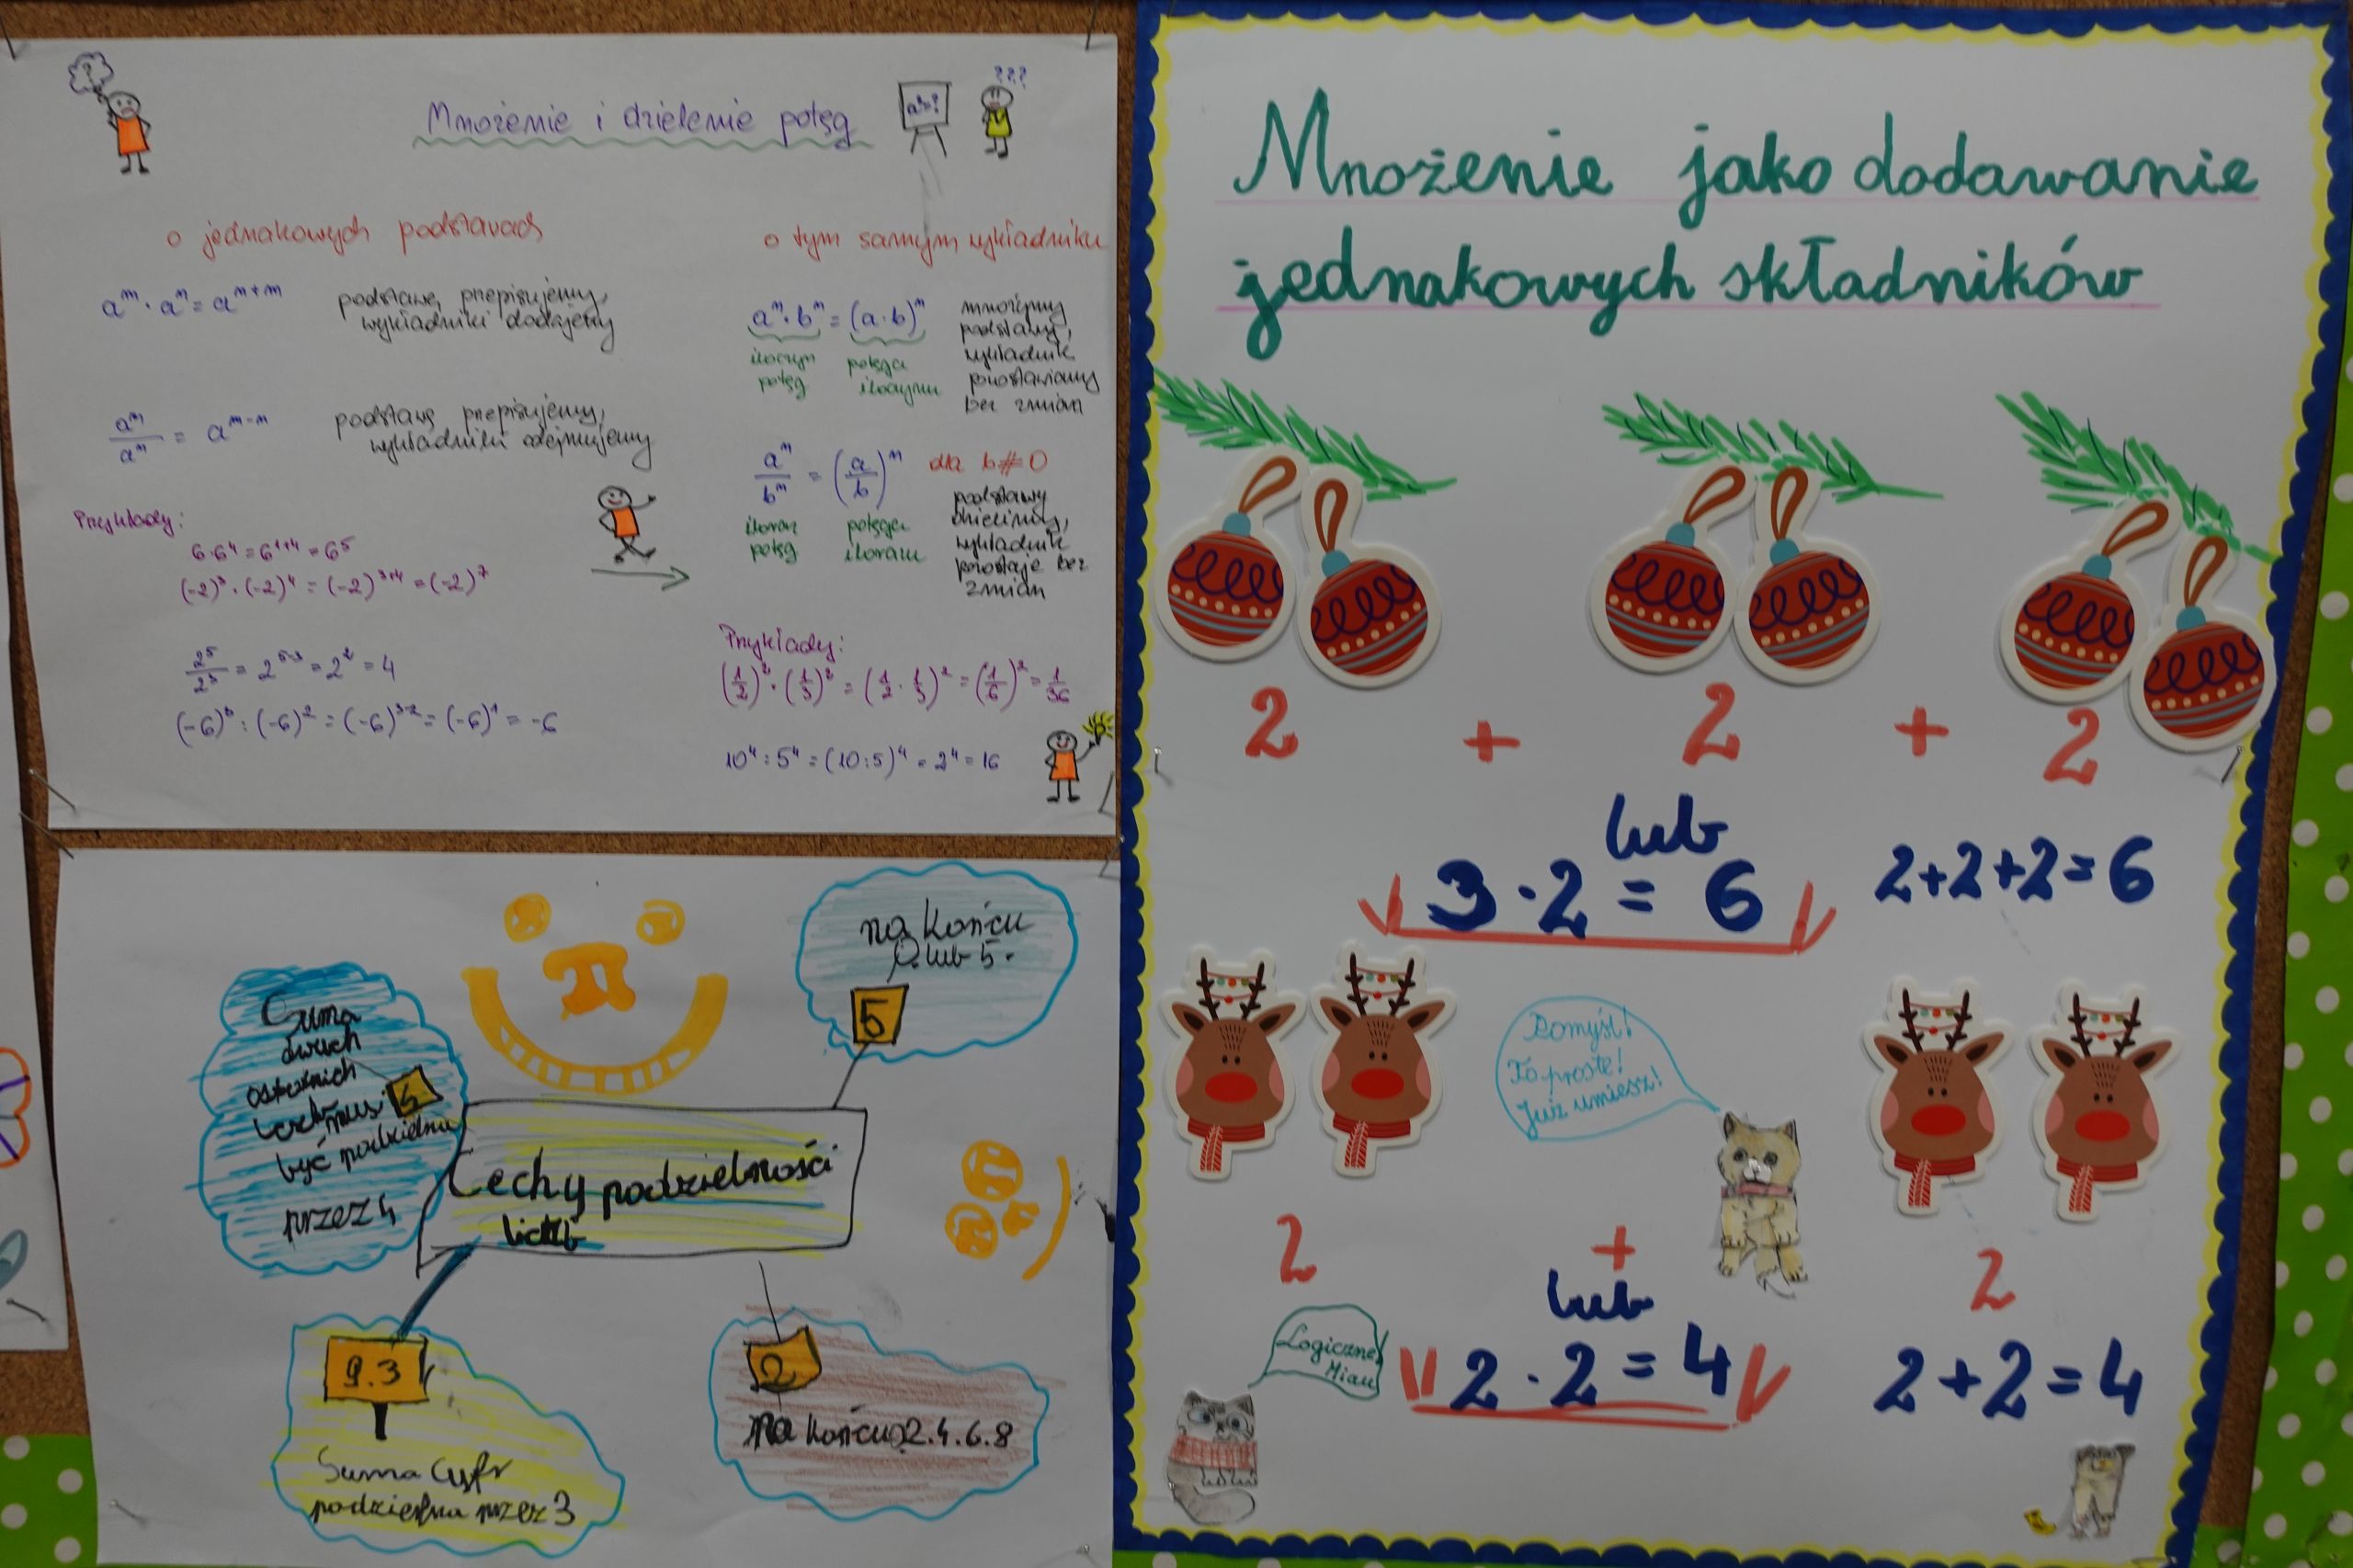 Mnożenie i dzielenie potęg
a³=?
???
?
o jednakowych podstawach
aᵐ · aⁿ = aᵐ⁺ⁿ
podstawę przepisujemy,
wykładniki dodajemy
aᵐ/aⁿ = aᵐ⁻ⁿ
podstawę przepisujemy,
wykładniki odejmujemy
Przykłady:
6·6⁴ = 6¹⁺⁴ = 6⁵
(-2)³ · (-2)⁴ = (-2)³⁺⁴ = (-2)⁷
2⁵/2³ = 2⁵⁻³ = 2² = 4
(-6)³ : (-6)² = (-6)³⁻² = (-6)¹ = -6
o tym samym wykładniku
aⁿ · bⁿ = (a·b)ⁿ
iloczyn
potęg
potęga
iloczynu
mnożymy
podstawy,
wykładnik
pozostawiamy
bez zmian
aⁿ/bⁿ = (a/b)ⁿ dla b≠0
iloraz
potęg
potęga
ilorazu
podstawy
dzielimy,
wykładnik
pozostaje bez
zmian
Przykłady:
(1/2)² · (1/3)² = (1/2 · 1/3)² = (1/6)² = 1/36
10⁴ : 5⁴ = (10:5)⁴ = 2⁴ = 16
π
na końcu
0. lub 5.
5
Suma
dwóch
ostatnich
musi
być podzielna
przez 4
Cechy podzielności
liczb
9.3
Suma cyfr
podzielna przez 3
2
na końcu 0.2.4.6.8
Mnożenie jako dodawanie
jednakowych składników
2 + 2 + 2
lub
3 · 2 = 6
2+2+2=6
Pomyśl!
To proste!
Już umiesz!
2 + 2
lub
Logiczne!
Miau
2 · 2 = 4
2+2=4